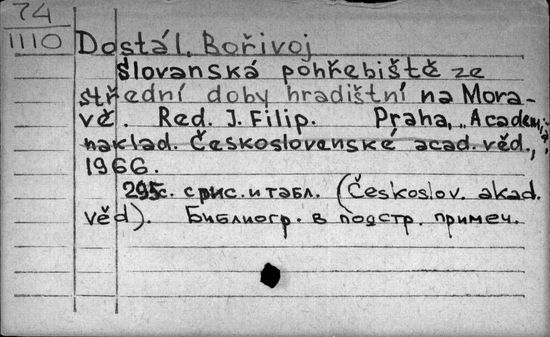 74
1110
Dostál, Bořivoj
Slovanská pohřebiště ze
střední doby hradištní na Mora-
vě. Red. J. Filip. Praha, „Academia“,
naklad. Československé acad. věd.,
1966.
295с. с рис. и табл. (Českoslov. akad.
věd). Библиогр. в подстр. примеч.